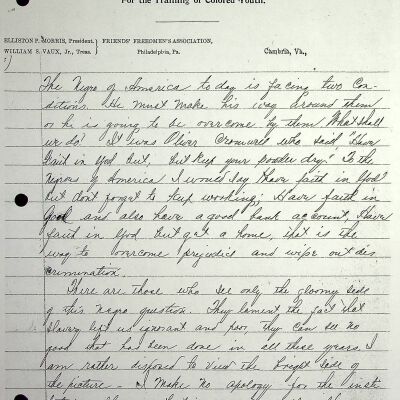 For the Training of Colored Youth.
ELLISTON P. MORRIS, President. } FRIENDS' FREEDMEN'S ASSOCIATION,
WILLIAM S. VAUX, Jr., Treas. } Philadelphia, Pa. Cambria, Va.,
The Negro of America to day is facing two Con-
ditions. He must make his way around them
or he is going to be overcome by them What shall
we do? It was Oliver Cromwell who said "Have
Faith in God but, but keep your powder dry." To the
Negroes of America I would say Have faith in God
but dont forget to keep working; Have faith in
God and also have a good bank account, Have
faith in God but get a home, that is the
way to overcome prejudice and wipe out dis
crimination.
There are those who see only the gloomy side
of this Negro question. They lament the fact that
Slavery left us ignorant and poor, they can see no
good that has been done in all these years. I
am rather disposed to view the bright side of
the picture - I make no apology for the insti